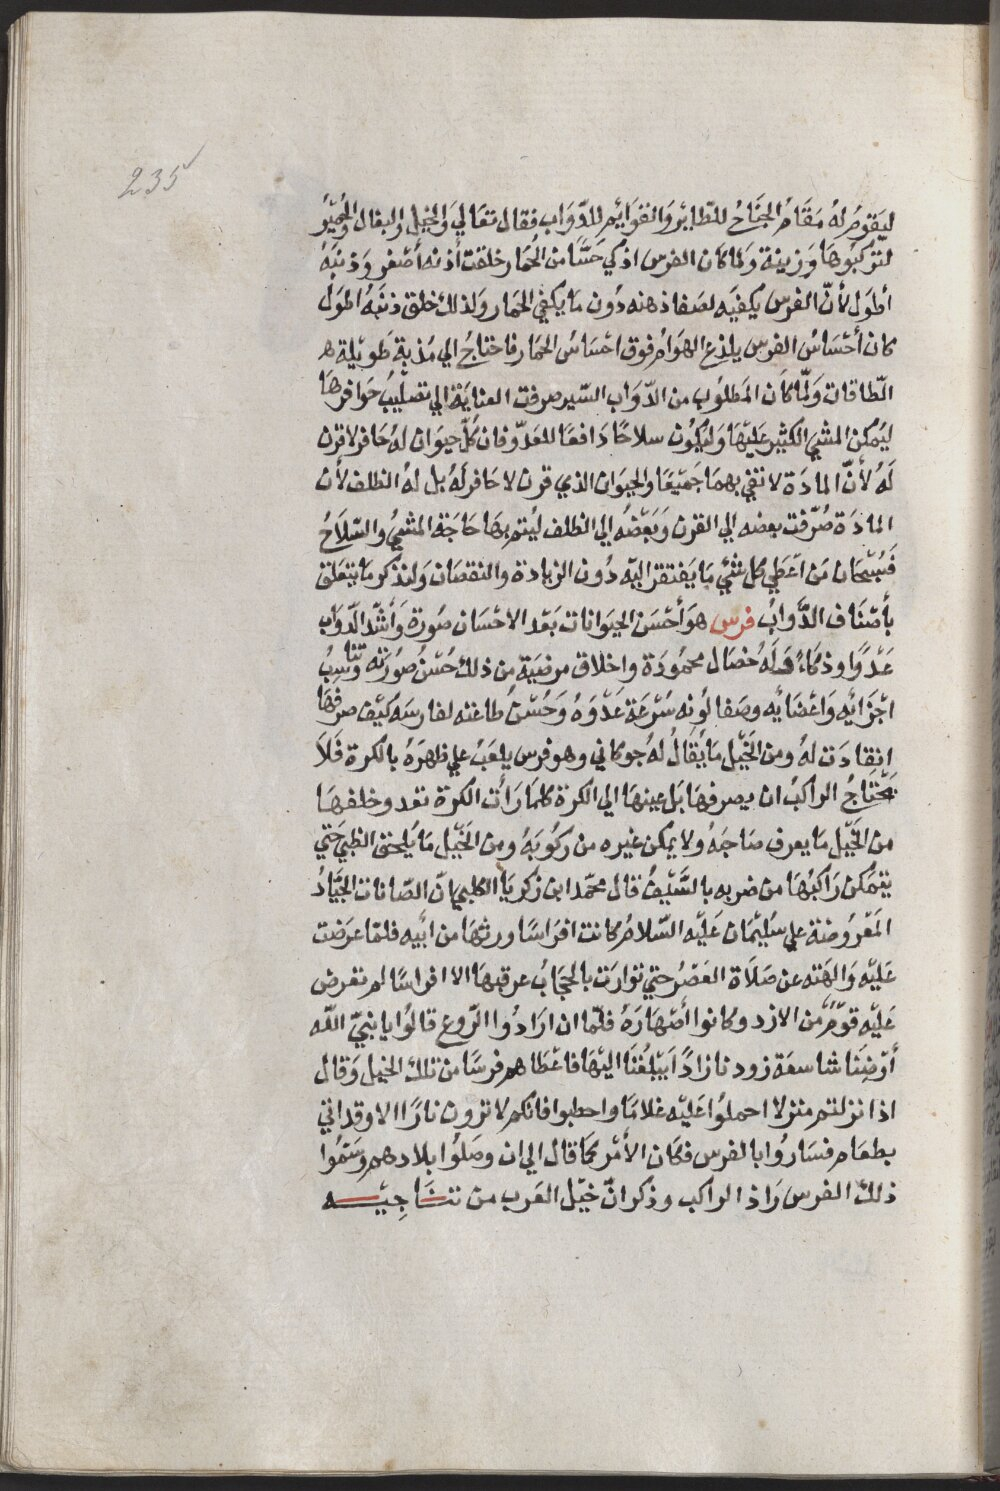 235
ليَقومُ لهُ مَقَامُ الجنَاحُ للطّايرْ وَالقوَايم للدّوَاب فقال تعَاليَ وَالخيل والبغال والحُمَيْرُ
لتركبُوهَا وَزينة وَلما كان الفرس اذكي حَسًّا من الحُمار خلقت أذنه أصْغر وَذنبَهُ
أطوَل لأنّ الفرس يكفيَه لصَفا ذهنه دُون مَا يكفي الحمار وَلذلك خلق ذنبَهُ اطوَل
كان أحْسَاسُ الفرس يلذع الهوَام فوق احْسَاسُ الحمار فاحتاجُ الي مُذبة طويْلة
الطّاقات وَلمّا كان المَطلوُب من الدّوَاب السّير صرفت العنايَة الي تصْليبُ حوَافرهَا
ليُمكن المشيَ الكثير عَليْهَا وَليكوُن سلاحًا دَافعًا للعَدّو فان كلّ حيوَان لهُ حَافر لا قرن
لَهُ لأنّ المادَة لا تفي بهمَا جَميْعًا والحيَوان الذي قرن لا حَافر لَهُ بل لهُ الظلف لأن
المادَة صُرّفت بعضه الي القرن وَبَعْضُه إلي الظلف ليُتم بهَا حَاجَة المشيُ والسّلاحُ
فَسُبْحَان مَن اعْطي كل شئ مَا يَفتقر اليْه دُون الزيادة والنقصَان وَلنذكر مَا يتعَلق
بأصْنَاف الدَّوابُ فرس هوَ أحْسَن الحيَوانات بَعْد الاحْسَان صُورة وَأشدّ الدّوَاب
عَدْوًا وذكاءً وَلَهُ خصَال محمُودَة واخلاق مرضيَة من ذلك حُسْنُ صُورَته وتناسبُ
اجْزَايه وَاعْضَايه وصَفا لوُنه سُرْعَة عَدْوَهُ وَحُسْنُ طاعَته لفارسَه كيْف صرفهَا
انقادَت لهُ ومن الخَيْل مَا يُقالُ لهُ جوكاني وهو فرس يلعَبُ علي ظهرَهُ بالكرة فَلاَ
يَحْتاجُ الراكبُ ان يصرفهَا بَل عينهَا الي الكرة كلما رَأت الكرة تعدو خلفهَا
من الخَيْل مَا يعرف صَاحبَهُ ولا يمكن غيره من ركُوبَهُ ومن الخَيْل مَا يُلحق الظبي حَتي
يتمكن رَاكبُهَا من ضربه بالسَّيْفُ قال محمّد ابن زكريَا الكلبي انّ الصّافنات الجيَادُ
المَعْرُوضَة علي سُليْمَان عَليْه السّلامُ كانت افرَاسًا ورثهَا من ابيْه فلمّا عرَضت
عَليْه وَالهَته عن صَلاَة العَصْرُ حتي توارَت بالحجَابُ عرقبهَا الا افراسًا لم تعرض
عَليْه قوْمٌ من الازد وكانوا أصْهَارَهُ فلمّا ان ارَادُوا الرّوع قالُوا يا نبيّ اللّه
أرْضِنَا شاسعَة زودنا زادًا يَبْلغُنَا اليْهَا فاعْطَاهم فرسًا من تلك الخيل وَقال
اذا نزلتم منزلا احملوُا عَليْه غلامًا واحطبوا فانكم لا ترون نارًا الا وقد اتي
بطعَام فسَارُوا بالفرس فكان الأمْر كمَا قال الي ان وصَلوُا بلادهم وسَمّوا
ذلك الفرس زَاد الراكب وذكر انّ خيْل العَرب من نتَاجِيْه